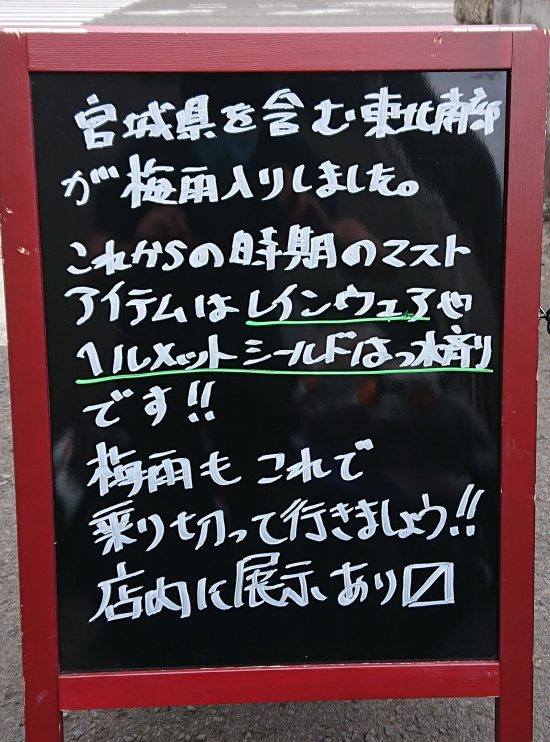 宮城県を含む東北南部
が梅雨入りしました。
これからの時期のマスト
アイテムはレインウェアや
ヘルメットシールドはっ水剤
です!!
梅雨もこれで
乗り切って行きましょう!!
店内に展示あり〼